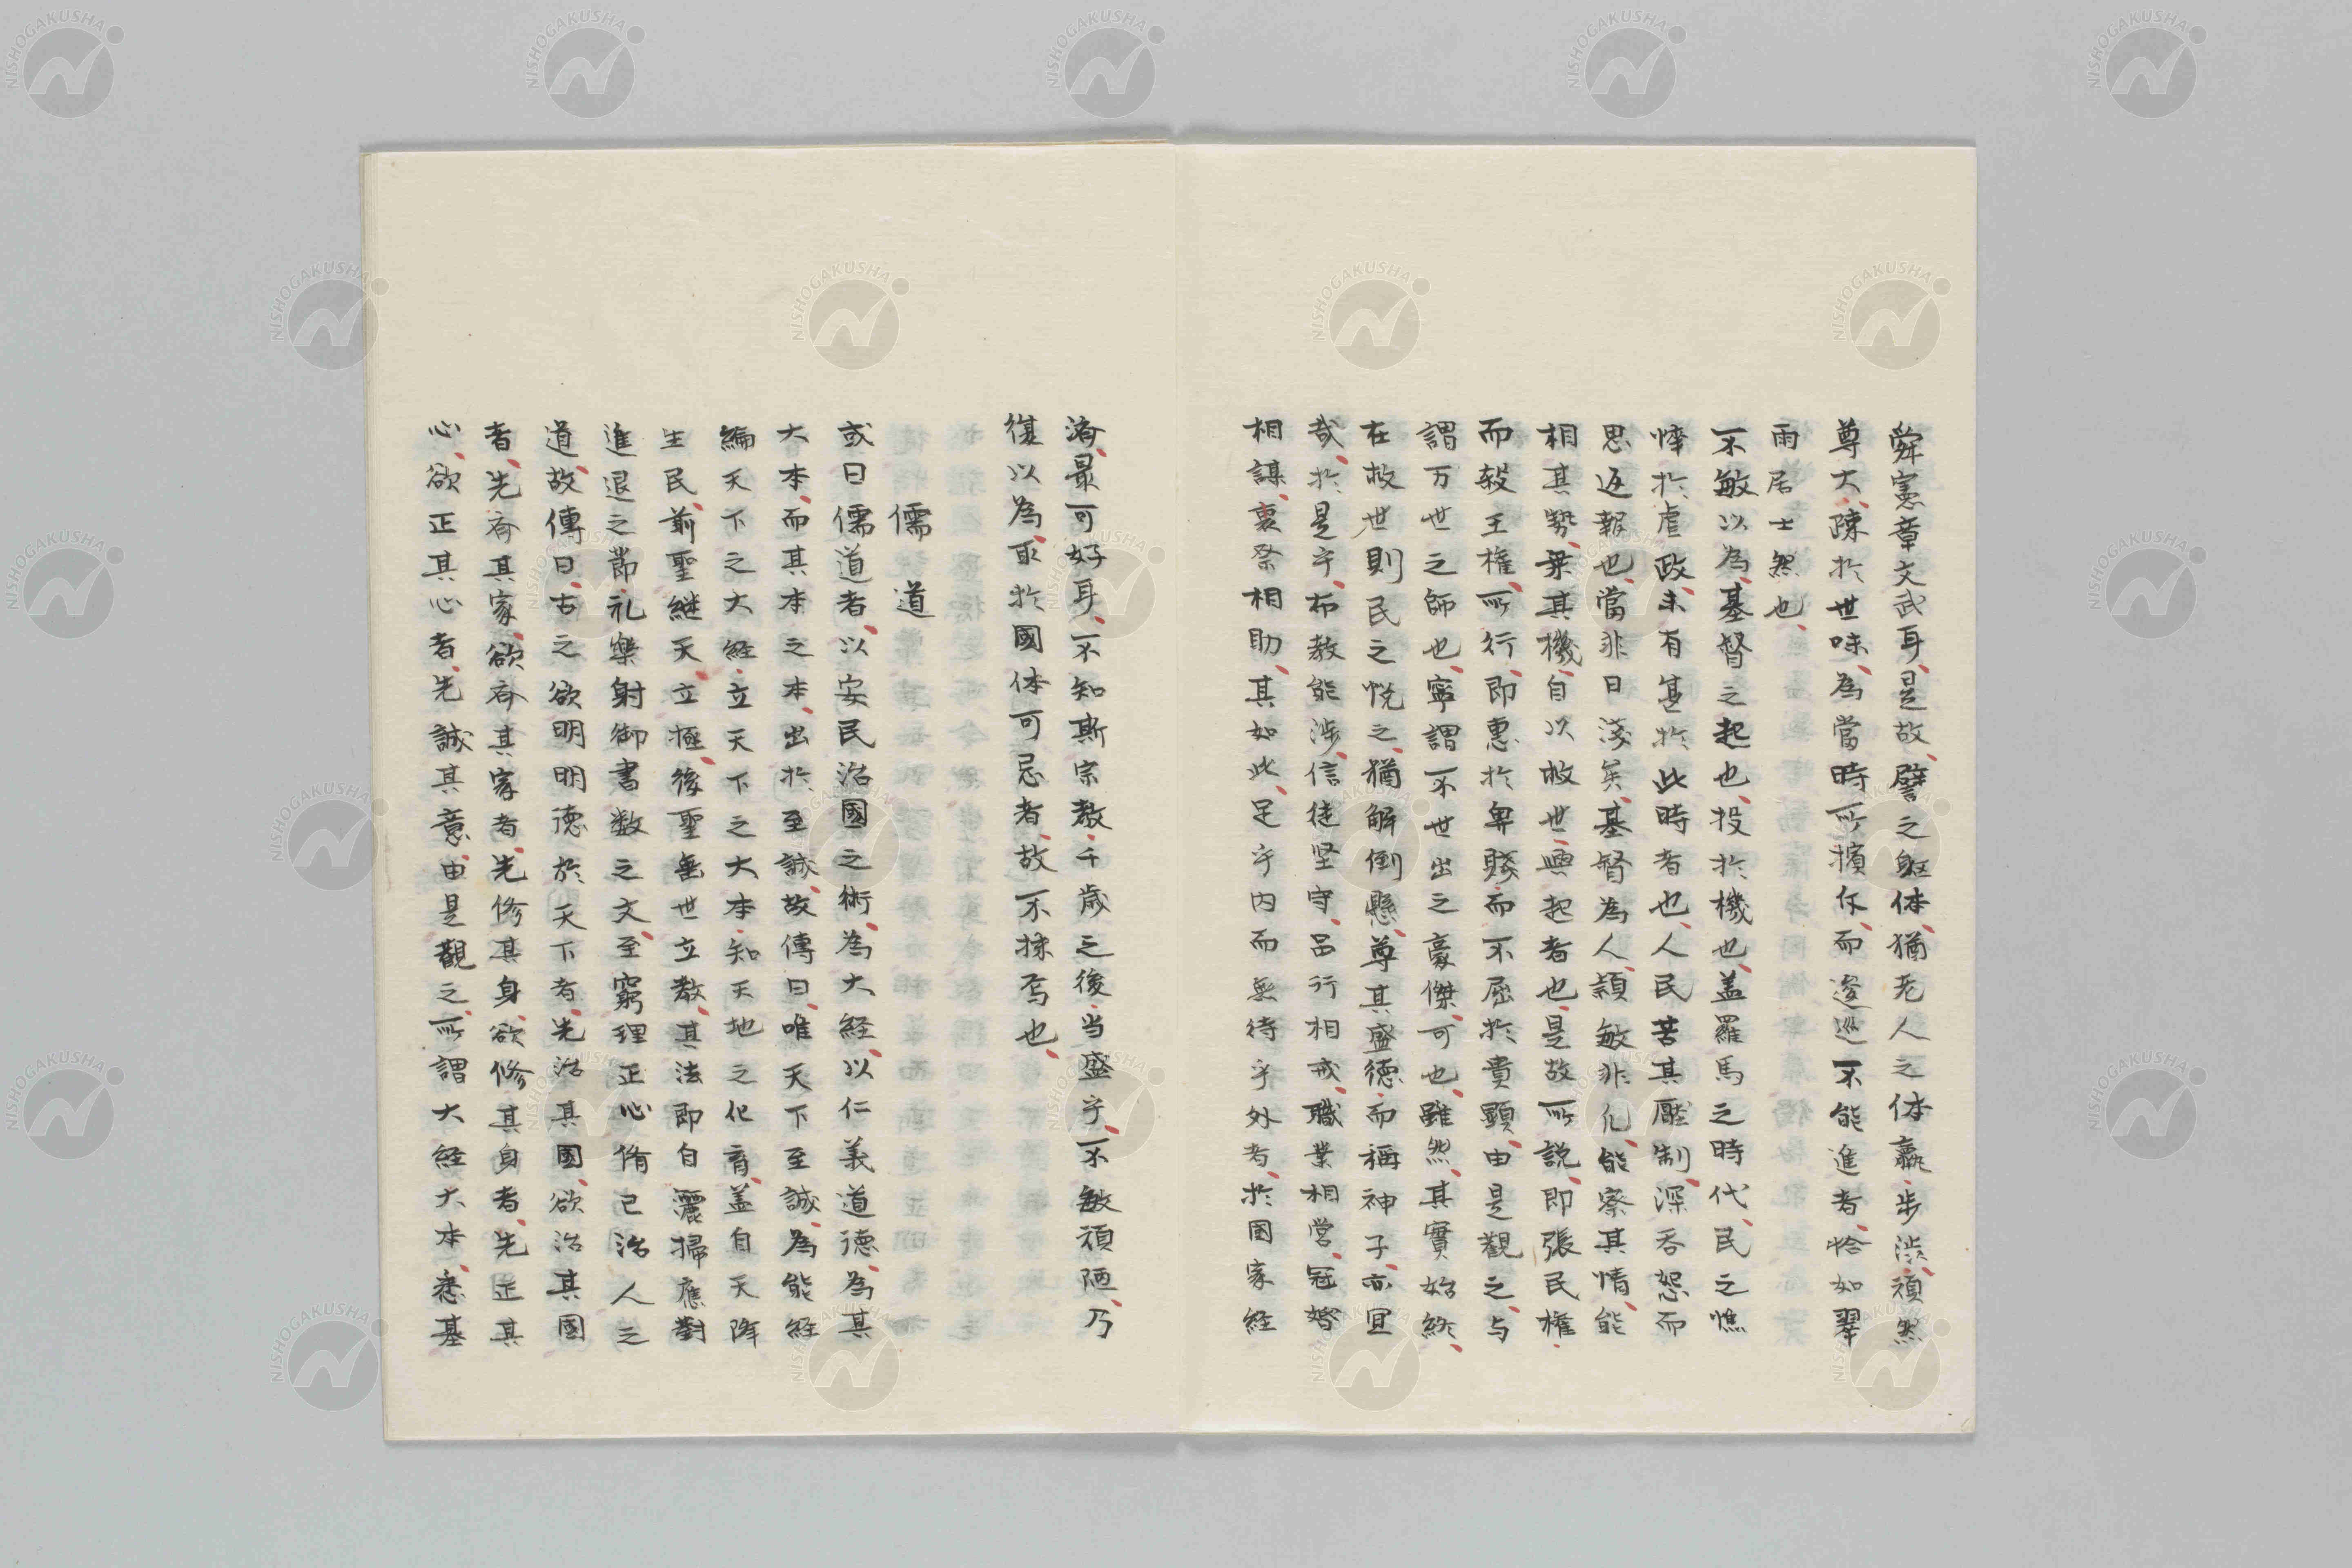 舜憲章文武耳、是故、譬之躯体、猶老人之体羸、歩渋、頑然
尊大、踈於世味、為當時所擯斥、而逡巡不能進者、恰如翠
雨居士然也、
不敏以為、基督之起也、投於機也、盖羅馬之時代、民之憔
悴於虐政、未有甚於此時者也、人民苦其壓制、深呑恕而
思返報也、當非日淺矣、基督為人、頴敏非凡、能察其情、能
相其勢、乗其機、自以救世、興起者也、是故所説、即張民権、
而殺王権、所行、即惠於卑賤、而不屈於貴顕、由是觀之、与
謂万世之師也、寧謂不世出之豪傑、可也、雖然、其實始終、
在救世、則民之悦之、猶解倒懸、尊其盛德、而稱神子、亦宜
哉、於是乎、布教能渉、信徒堅守、品行相戒、職業相営、冠婚
相謀、喪祭相助、其如此、足乎内而無待乎外者、於国家経
済、最可好耳、不知斯宗教、千歳之後、当盛乎、不敏頑陋、乃
復以為、取於國体可忌者、故不採焉也、
儒　道
或曰儒道者、以安民治國之術、為大経、以仁義道德、為其
大本、而其本之本、出於至誠、故傳曰、唯天下至誠、為能経
綸天下之大経、立天下之大本、知天地之化育、盖自天降
生民、前聖継天立極、後聖垂世立教、其法即自灑掃應對
進退之節、礼樂射御書数之文、至窮理正心脩己治人之
道、故傳曰、古之欲明明德於天下者、先治其國、欲治其國
者、先斉其家、欲斉其家者、先修其身、欲修其身者、先正其
心、欲正其心者、先誠其意、由是觀之、所謂大経大本、悉基
NISHOGAKUSHA